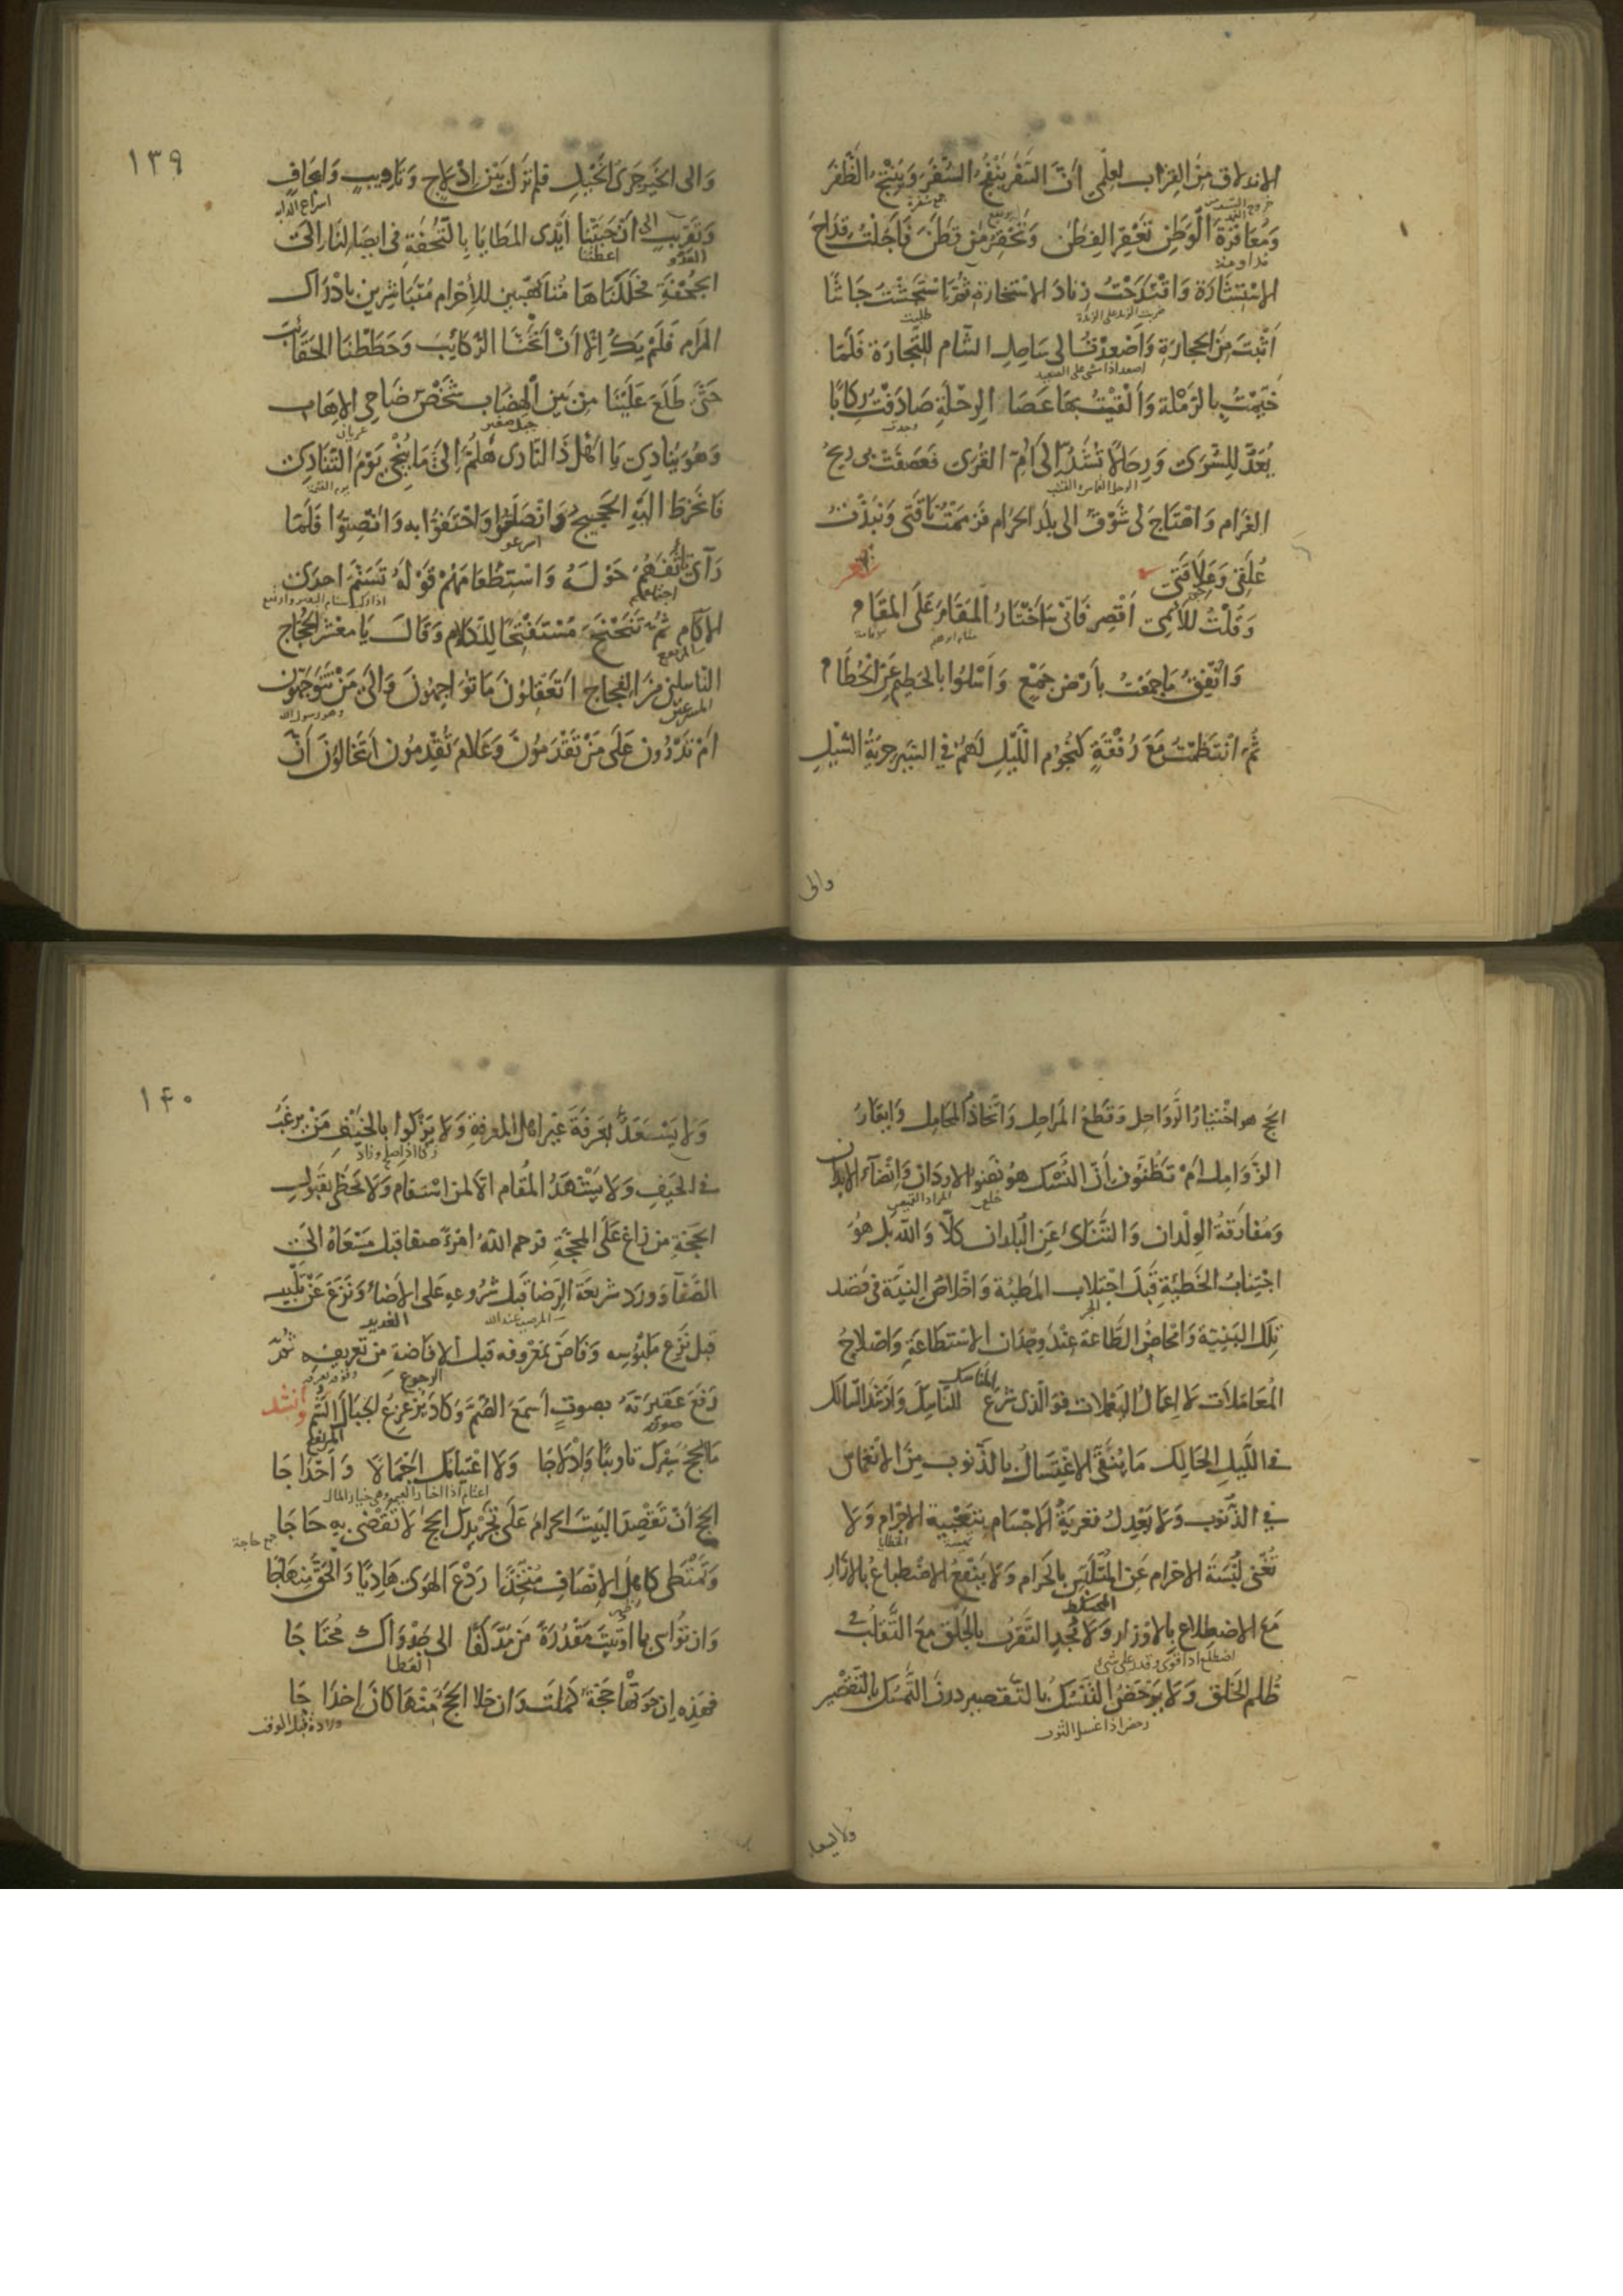 الاندلاق من القراب لعلمى أَنَّ السَّفَرَ يُنْفِجُ السُّفَرَ وَيُنْتِجُ الظَّفَرَ
وَمُعَاقَرَةَ الْوَطَنِ تَعْقِرُ الفِطَنَ وَتَحْقِرُ مَنْ قَطَنَ فَأَجَلْتُ قِدَاحَ
الاسْتِشَارَة وَاقْتَدَحْتُ زنادَ الاستخارة ثمَّ اسْتَجَشْتُ جَأشًا
أَثْبَتَ مِنَ الحِجَارَةِ وَأصْعَدْتُ الى سَاحِلِ الشَّام لِلتِّجارَة فَلَمَّا
خَيَّمْتُ بِالرَّمْلَة وَأَلْقَيْتُ بِهَا عَصَا الرِحْلَةِ صَادَفْتُ رِكَابًا
تُعَدُّ لِلسُّرَى وَرِحَالًا تُشَدُّ إلَى أُمِّ القُرَى فَعَصَفَتْ بى رِيحُ
الغَرَام وَاهْتَاجَ لى شَوْقٌ الى بلد الحَرَام فَزَمَمْتُ نَاقَتِى وَنَبَذْتُ
عُلَقِى وَعِلَاقَتِى
شعر
وَقُلْتُ لِلَّائِمِى أَقْصِر فَاِنّى سَاَخْتَارُ الْمَقَامَ عَلَى المُقَام
وَاُنْفِقُ مَا جَمَعْتُ بِأَرْضِ جَمْعٍ وَأَسْلُوا بِالحَطِيم عَنِ الحُطَام
ثُمَّ انْتَظَمْتُ مَعَ رُفْقَةٍ كَنُجُوم اللَّيْلِ لَهُمْ فِي السَّيْرِ جِرْيَةُ السَّيْلِ
والى
١٣٩
وَالى الخَيْرِ جَرْىُ الخَيْلِ فلم نَزَلْ بَيْنَ إدْلَاجٍ وَتَاوِيبٍ وَايجَافٍ
اسراع الدابه
وَتَقْرِيبٍ الى أَنْ حَبَتْنَا أَيْدِى المَطَايَا بِالتُّحْفَةِ فى ايصَالِنَا رالى
العدو اعطتنا
الجُحْفَةِ فَحَلَلْنَاهَا مُتَأَهِّبِين للأِحْرَام مُتَبَاشِرِين بِادْرَاك
المَرَام فَلَمْ يَكُ إلَّا أَنْ أَنَخْنَا الرَّكَائِبَ وَحَطَطْنَا الحَقَائِبَ
حَتَّى طَلَعَ عَلَيْنَا مِنْ بَيْنِ الْهِضَابِ شَخْصٌ ضَاحِى الإهَاب
جبل صغير عريان
وَهُوَ يُنَادِى يَا اهْلَ ذَا النَّادِى هَلُمَّ إِلَى مَا يُنْجِى يَوْمَ التَّنَادِى
يوم القيمة
فَانْخَرَطَ الَيْهِ الحَجِيجُ وَانْصَلَتُوا وَاحْتَفُّوا بِهِ وَانْصِتُوا فَلَمَّا
اسرعو
رَآى تَأَثُّفَهُمْ حَوْلَهُ وَاسْتِطْعَامَهُمْ قَوْلَهُ تَسَنَّمَ احدَى
اجتماعهم
الآكَام ثُمَّ تَنَحْنَحَ مُسْتَفْتِحًا لِلْكَلَام وَقَالَ يَا مَعْشَرَ الحُجَّاج
النَّاسِلِينَ مِنَ الفِجَاج اَتَعْقِلُونَ مَا تُوَاجِهُونَ وَالَى مَنْ تَتَوَجَّهُون
المسرعين
اَمْ تَدْرُون عَلَى مَنْ تَقْدَمُونَ وَعَلَامَ تُقْدِمُون أَتَخَالُوْنَ أَنَّ
الحَجَّ هو اخْتِيَارُ الرَّوَاحِل وَقَطْعُ المَرَاحِل وَاتِّخَاذُ المَحَامِل وَإيقَارُ
الزَّوَامِلِ اَمْ تَظُنُّونَ أَنَّ النُّسْكَ هو نَضْوُ الاردَانِ وَانْضَآءُ الابدان
خلع
وَمُفَارَقَةُ الوِلْدان وَالتَّنَائى عَنِ البُلدان كَلَّا وَاللهِ بل هُوَ
اجْتِنَابُ الخَطِيَّةِ قَبْلَ اجْتِلاب المَطِيَّة وَاخْلَاصُ النِيَّة فى قَصْد
تِلْكَ البَنِيَّة وَامْحَاضُ الطَّاعَة عِنْدَ وِجْدَان الاسْتِطَاعَةِ وَاصْلَاحُ
المُعَامَلَات اَمَا اِعْمَالُ اليَعْمَلات فَوَ الَّذى شَرَعَ المَنَاسِكَ لِلنَّاسِكِ وَاَرْشَدَ السَّالِك
فى اللَّيلِ الحَالِك مَا يُنَقِّى الاغْتِسَالُ بالذَّنُوب مِنَ الانْغِمَاسِ
فِى الذُّنُوب وَلَا تَعْدِلُ تَعْرِيَةُ الاجْسَام بتَعْبِيَةِ الاجْرَام وَلَا
الخطايا
تُغْنِى لِبْسَةُ الاحرام عَنِ المُتَلَبِّسِ بالحَرَام وَلَا يَنْفَعُ الاضْطِبَاعُ بالازَارِ
مَعَ الاضطِلاع بالاوْزَار وَلَا يُجْدِى التَّقَرُّبُ بِالحَلْقِ مَعَ التَّقَلُّبِ فى
اضطلع اذا قوى وقدر على شئ
ظُلْم الخَلْقِ وَلَا يَرْحَضُ التَّنَسُّكُ بالتَّقصير دَرَنَ التَّمَسُّك بالتَّقْصِير
رحض اذا غسل الثوب
١٤٠
وَلَا يَسْعَدُ بِعَرَفَةَ غَيْرُ اهْل المعْرِفَةِ وَلَا يَزْكُوا بِالخَيْفِ مَنْ يرغَبُ
زكا اذا صلح وزاد
فى الحَيْفِ وَلا يَشْهَدُ المَقَام الّا لمن اسْتَقَام وَلَا يَحْظَى بِقَبُولِ
الحَجَّةِ من زَاغَ عَنِ المحجَّةِ فَرحم اللهُ امْرَءً صفا قبل مَسْعَاهُ الَى
الصَّفَا وَوَرَدَ شَرِيعَةَ الرِّضَا قَبْلَ شُرُوعِهِ عَلَى الأضَاءِ وَنَزَعَ عَنْ تَلْبِيسِهِ
الغدير
قبل نَزْعِ مَلْبُوسِهِ وَفَاضَ بِمَعْرُوفِهِ قبل الإفَاضَةِ مِن تَعْرِيفِهِ ثُمَّ
الرجوع
رَفَعَ عَقِيرَتَهُ بصوتٍ أَسْمَعَ الصُّمَّ وَكَادَ يُزَعْزِعُ الجِبَالَ الشُّمَّ وانشد
صوته المرتفع
مَا الحَجُّ سَيْرَكَ تَاوِيبًا وَاِدْلاجًا وَلَا اعْتِيَامَكَ اَجْمَالًا وَاَحْدَاجَا
الحَجُّ أنْ تَقْصِدَ البَيْتَ الحَرامَ عَلَى تَجْرِيدِكَ الحَجَّ لَا تَقْضِى بِهِ حَاجَا
جمع حاجة
وَتَمْتَطِى كَاهِلَ الإنْصَافِ مُتَّخِذًا رَدْعَ الهَوَى هَادِيًا وَالحَقَّ مِنهَاجَا
وَان تُوَاسِى بما اُوتِيتَ مَقْدُرَةً مَن مَدَّ كَفًّا الى جَدْوَاكَ مُحْتَاجَا
العطا
فهَذِه اِن حَوَتْهَا حَجَّةٌ كَمُلَت وَان خَلَا الحَجُّ مِنْهَا كَانَ اِخْدَاجَا
ولادة قبل الوقت